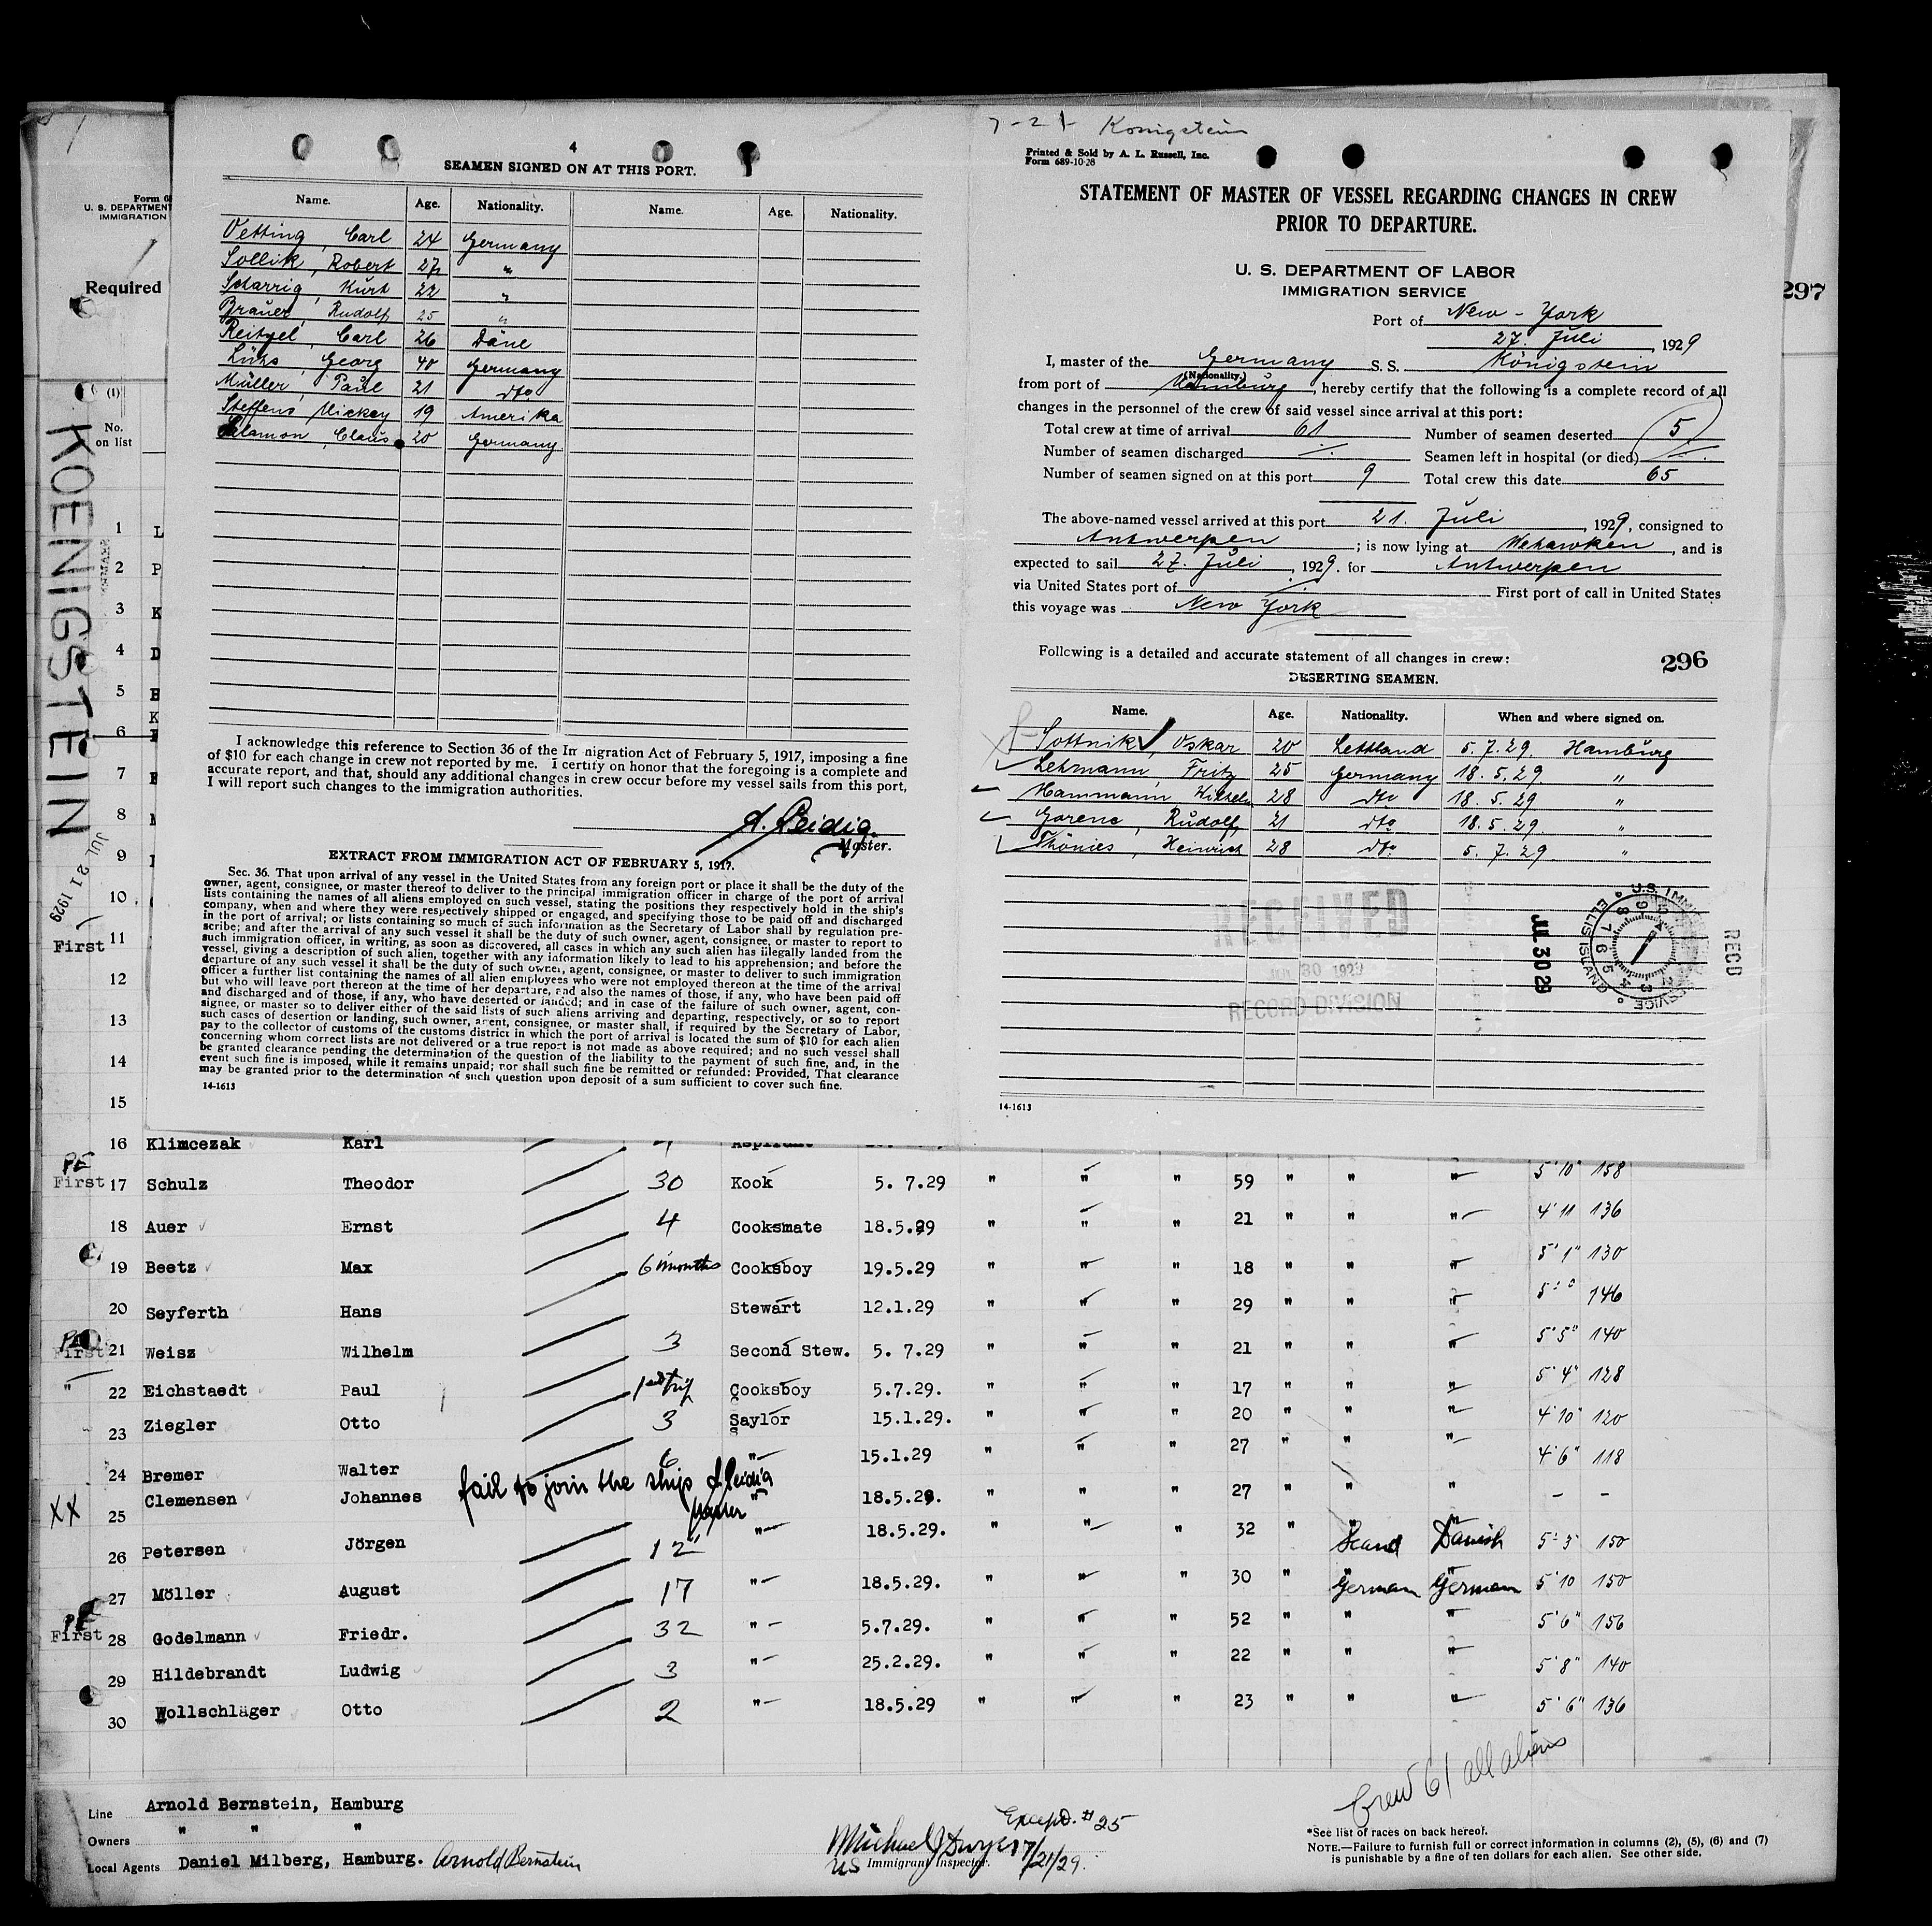 4
SEAMEN SIGNED ON AT THIS PORT.
Name. Age. Nationality. Name. Age. Nationality.
Oetting, Carl 24 Germany
Sollik, Robert 27 "
Scharrig, Kurt 22 "
Brauer, Rudolf 25 "
Reitzel, Carl 26 Däne
Georg 40 Germany
Müller, Paul 21 dto
Steffens, Mickey 19 Amerika
Salamon, Claus 20 Germany
I acknowledge this reference to Section 36 of the Immigration Act of February 5, 1917, imposing a fine
of $10 for each change in crew not reported by me. I certify on honor that the foregoing is a complete and
accurate report, and that, should any additional changes in crew occur before my vessel sails from this port,
I will report such changes to the immigration authorities.
A. Leidig.
Master.
EXTRACT FROM IMMIGRATION ACT OF FEBRUARY 5, 1917.
Sec. 36. That upon arrival of any vessel in the United States from any foreign port or place it shall be the duty of the
owner, agent, consignee, or master thereof to deliver to the principal immigration officer in charge of the port of arrival
lists containing the names of all aliens employed on such vessel, stating the positions they respectively hold in the ship's
company, when and where they were respectively shipped or engaged, and specifying those to be paid off and discharged
in the port of arrival; or lists containing so much of such information as the Secretary of Labor shall by regulation pre-
scribe; and after the arrival of any such vessel it shall be the duty of such owner, agent, consignee, or master to report to
such immigration officer, in writing, as soon as discovered, all cases in which any such alien has illegally landed from the
vessel, giving a description of such alien, together with any information likely to lead to his apprehension; and before the
departure of any such vessel it shall be the duty of such owner, agent, consignee, or master to deliver to such immigration
officer a further list containing the names of all alien employees who were not employed thereon at the time of the arrival
but who will leave port thereon at the time of her departure, and also the names of those, if any, who have been paid off
and discharged and of those, if any, who have deserted or landed; and in case of the failure of such owner, agent, con-
signee, or master so to deliver either of the said lists of such aliens arriving and departing, respectively, or so to report
such cases of desertion or landing, such owner, agent, consignee, or master shall, if required by the Secretary of Labor,
pay to the collector of customs of the customs district in which the port of arrival is located the sum of $10 for each alien
concerning whom correct lists are not delivered or a true report is not made as above required; and no such vessel shall
be granted clearance pending the determination of the question of the liability to the payment of such fine, and, in the
event such fine is imposed, while it remains unpaid; nor shall such fine be remitted or refunded: Provided, That clearance
may be granted prior to the determination of such question upon deposit of a sum sufficient to cover such fine.
14-1613
7-21 Konigstein
Printed & Sold by A. L. Russell, Inc.
Form 689-10-28
STATEMENT OF MASTER OF VESSEL REGARDING CHANGES IN CREW
PRIOR TO DEPARTURE.
U. S. DEPARTMENT OF LABOR
IMMIGRATION SERVICE
Port of New-York
27. Juli, 1929
I, master of the Germany S. S. Königstein
(Nationality.)
from port of Hamburg, hereby certify that the following is a complete record of all
changes in the personnel of the crew of said vessel since arrival at this port:
Total crew at time of arrival 61 Number of seamen deserted 5
Number of seamen discharged Seamen left in hospital (or died)
Number of seamen signed on at this port 9 Total crew this date 65
The above-named vessel arrived at this port 21. Juli, 1929, consigned to
Antwerpen; is now lying at Wehawken, and is
expected to sail 27. Juli, 1929. for Antwerpen
via United States port of First port of call in United States
this voyage was New York
Following is a detailed and accurate statement of all changes in crew:
296
DESERTING SEAMEN.
Name. Age. Nationality. When and where signed on.
Sottnik, Oskar 20 Lettland 5.7.29. Hamburg
Lehmann, Fritz 25 Germany 18.5.29. "
Hammann, Wilhelm 28 dto 18.5.29 "
Gorenc, Rudolf 21 dto 18.5.29. "
Thönies, Heinrich 28 dto 5.7.29 "
RECEIVED
JUL 30 1929
RECORD DIVISION
JUL 30 29
U.S. IMMI SERVICE
ELLIS ISLAND
RECD
14-1613
297
Form 68
U. S. DEPARTMENT
IMMIGRATION
Required
(1)
No.
on list
KOENIGSTEIN
JUL 21 1929
1 L
2 P
3 K
4 D
5 H
K
6
7
8
9
10
First 11
12
13
14
15
16 Klimcezak Karl Aspirant
PE
First 17 Schulz Theodor 30 Kook 5. 7.29 " " " 59 " " " 5'10" 158
18 Auer Ernst 4 Cooksmate 18.5.29 " " " 21 " " " 4'11 136
19 Beetz Max 6 months Cooksboy 19.5.29 " " " 18 " " " 5'1" 130
20 Seyferth Hans Stewart 12.1.29 " " " 29 " " " 146
First 21 Weisz Wilhelm 3 Second Stew. 5. 7.29 " " " 21 " " " 5'5" 140
" 22 Eichstaedt Paul 1st trip Cooksboy 5.7.29. " " " 17 " " " 5'4" 128
23 Ziegler Otto 3 Saylor 15.1.29. " " " 20 " " " 4'10" 120
24 Bremer Walter 6 " 15.1.29 " " " 27 " " " 4'6" 118
XX 25 Clemensen Johannes fail to join the ship A. Leidig Master " 18.5.29. " " " 27 " " " - -
26 Petersen Jörgen 12 " 18.5.29. " " " 32 " Scand Danish 5'3 150
27 Möller August 17 " 18.5.29. " " " 30 " German German 5'10 150
PE
First 28 Godelmann Friedr. 32 " 5.7.29. " " " 52 " " " 5'6" 156
29 Hildebrandt Ludwig 3 " 25.2.29. " " " 22 " " " 5'8" 140
30 Wollschläger Otto 2 " 18.5.29 " " " 23 " " " 5'6" 136
Crew 61 all aliens
Line Arnold Bernstein, Hamburg
Owners " " "
Local Agents Daniel Milberg, Hamburg. Arnold Bernstein
Except. #25
Michael J Dwyer 7/21/29.
US Immigrant Inspector.
*See list of races on back hereof.
NOTE.—Failure to furnish full or correct information in columns (2), (5), (6) and (7)
is punishable by a fine of ten dollars for each alien. See other side.